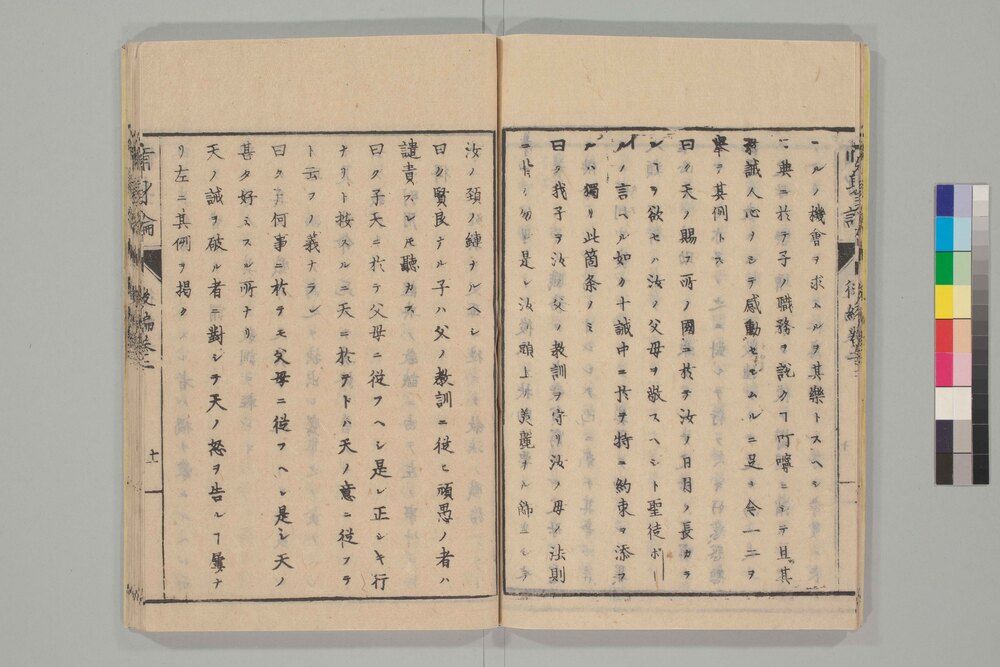 ールノ機會ヲ求ムルヲ其樂トスヘシ
典ニ於テ子ノ職務ヲ説クヿ叮嚀ニシテ且其
誡人心ヲシテ感動セシムルニ足ル今一二ヲ
舉テ其例トス
曰ク天ノ賜フ所ノ國ニ於テ汝ノ日月ノ長カラ
ンヿヲ欲セハ汝ノ父母ヲ敬スヘシト聖徒ポー
ルノ言ヘル如ク十誡中ニ於テ特ニ約束ヲ添フ
ルハ獨リ此箇条ノミ
曰ク我子ヲ汝ノ父ノ教訓ヲ守リ汝ノ母ノ法則
勿レ是レ汝ノ頭上ノ美麗ナル飾ニシテ
汝ノ頚ノ鏈ナルヘシ
曰ク賢良ナル子ハ父ノ教訓ニ從ヒ頑愚ノ者ハ
譴責スレ𪜈聽カス
曰ク子天ニ於テ父母ニ從フヘシ是レ正シキ行
ナリト按スルニ天ニ於テトハ天ノ意ニ從フテ
ト云フノ義ナラン
曰ク何事ニ於テモ父母ニ從フヘシ是レ天ノ
甚タ好ミスル所ナリ
天ノ誡ヲ破ル者ニ對シテ天ノ怒ヲ告ルヿ屢ナ
リ左ニ其例ヲ掲ク
後編卷二
十一